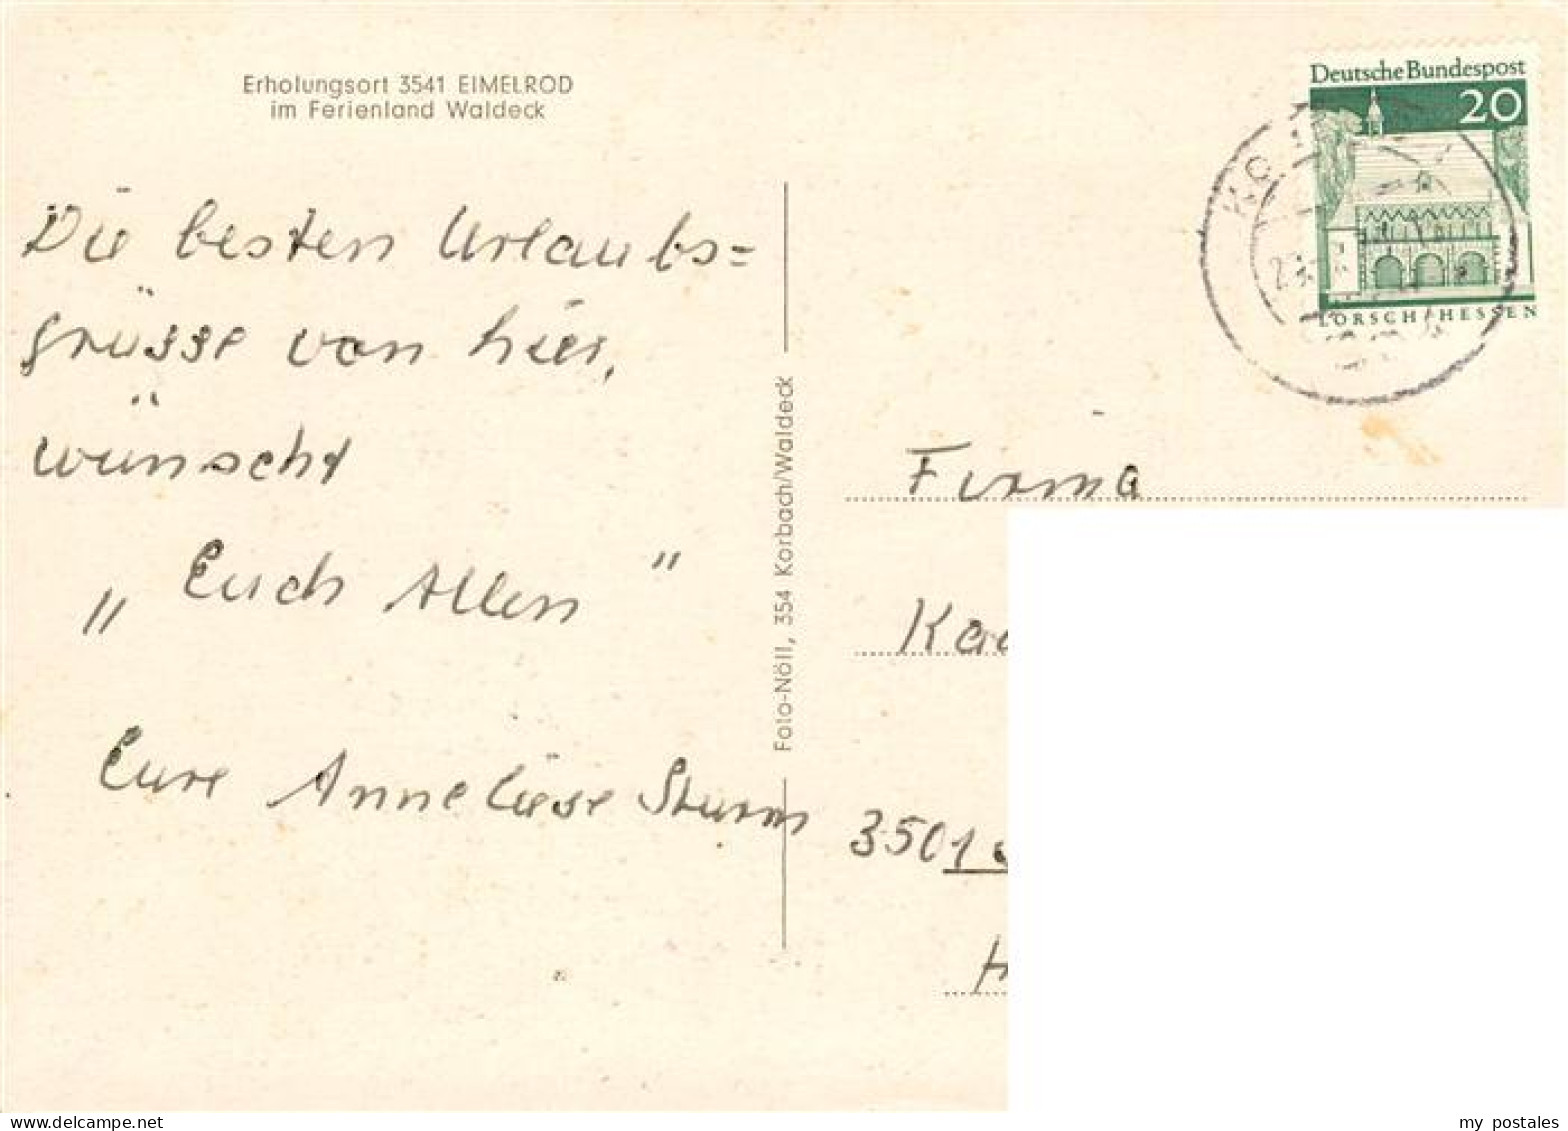 Erholungsort 3541 EIMELROD
im Ferienland Waldeck
Die besten Urlaubs=
grüsse von hier,
wünscht
„ Euch Allen "
Eure Anneliese Sturm
Foto-Nöll, 354 Korbach/Waldeck
Deutsche Bundespost
20
LORSCH/HESSEN
Firma
3501
delcampe.net
my_postales